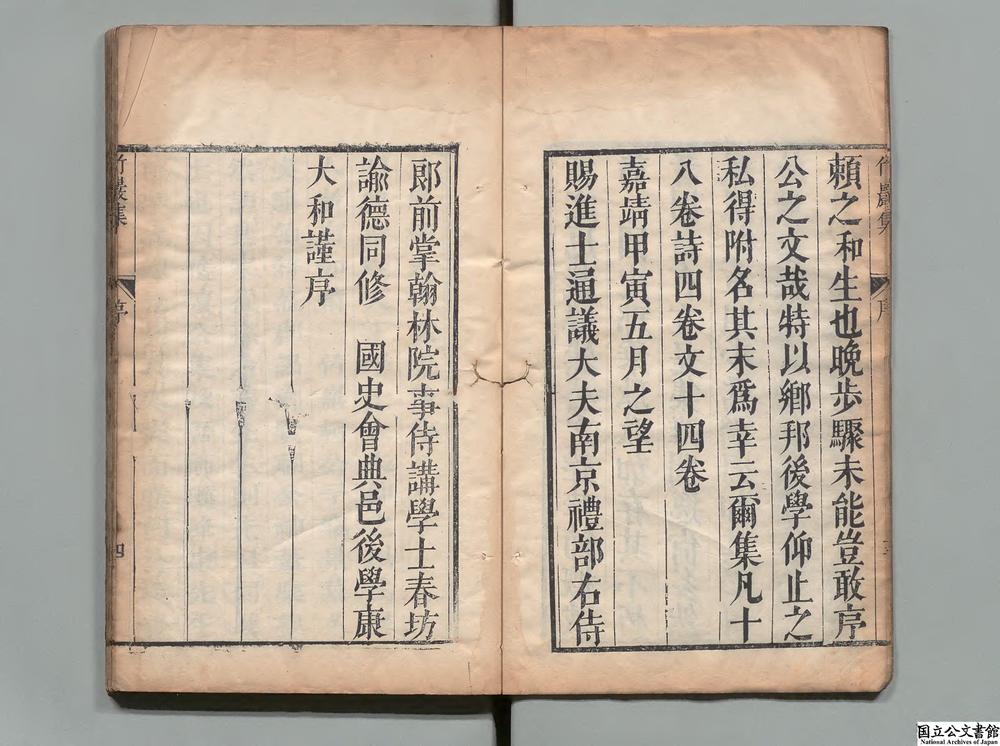 賴之和生也晚步驟未能豈敢序
公之文哉特以鄉邦後學仰止之
私得附名其末爲幸云爾集凡十
八卷詩四卷文十四卷
嘉靖甲寅五月之望
賜進士通議大夫南京禮部右侍
郎前掌翰林院事侍講學士春坊
諭德同修　國史會典邑後學康
大和謹序
竹巖集
序
四
竹巖集
序
国立公文書館
National Archives of Japan